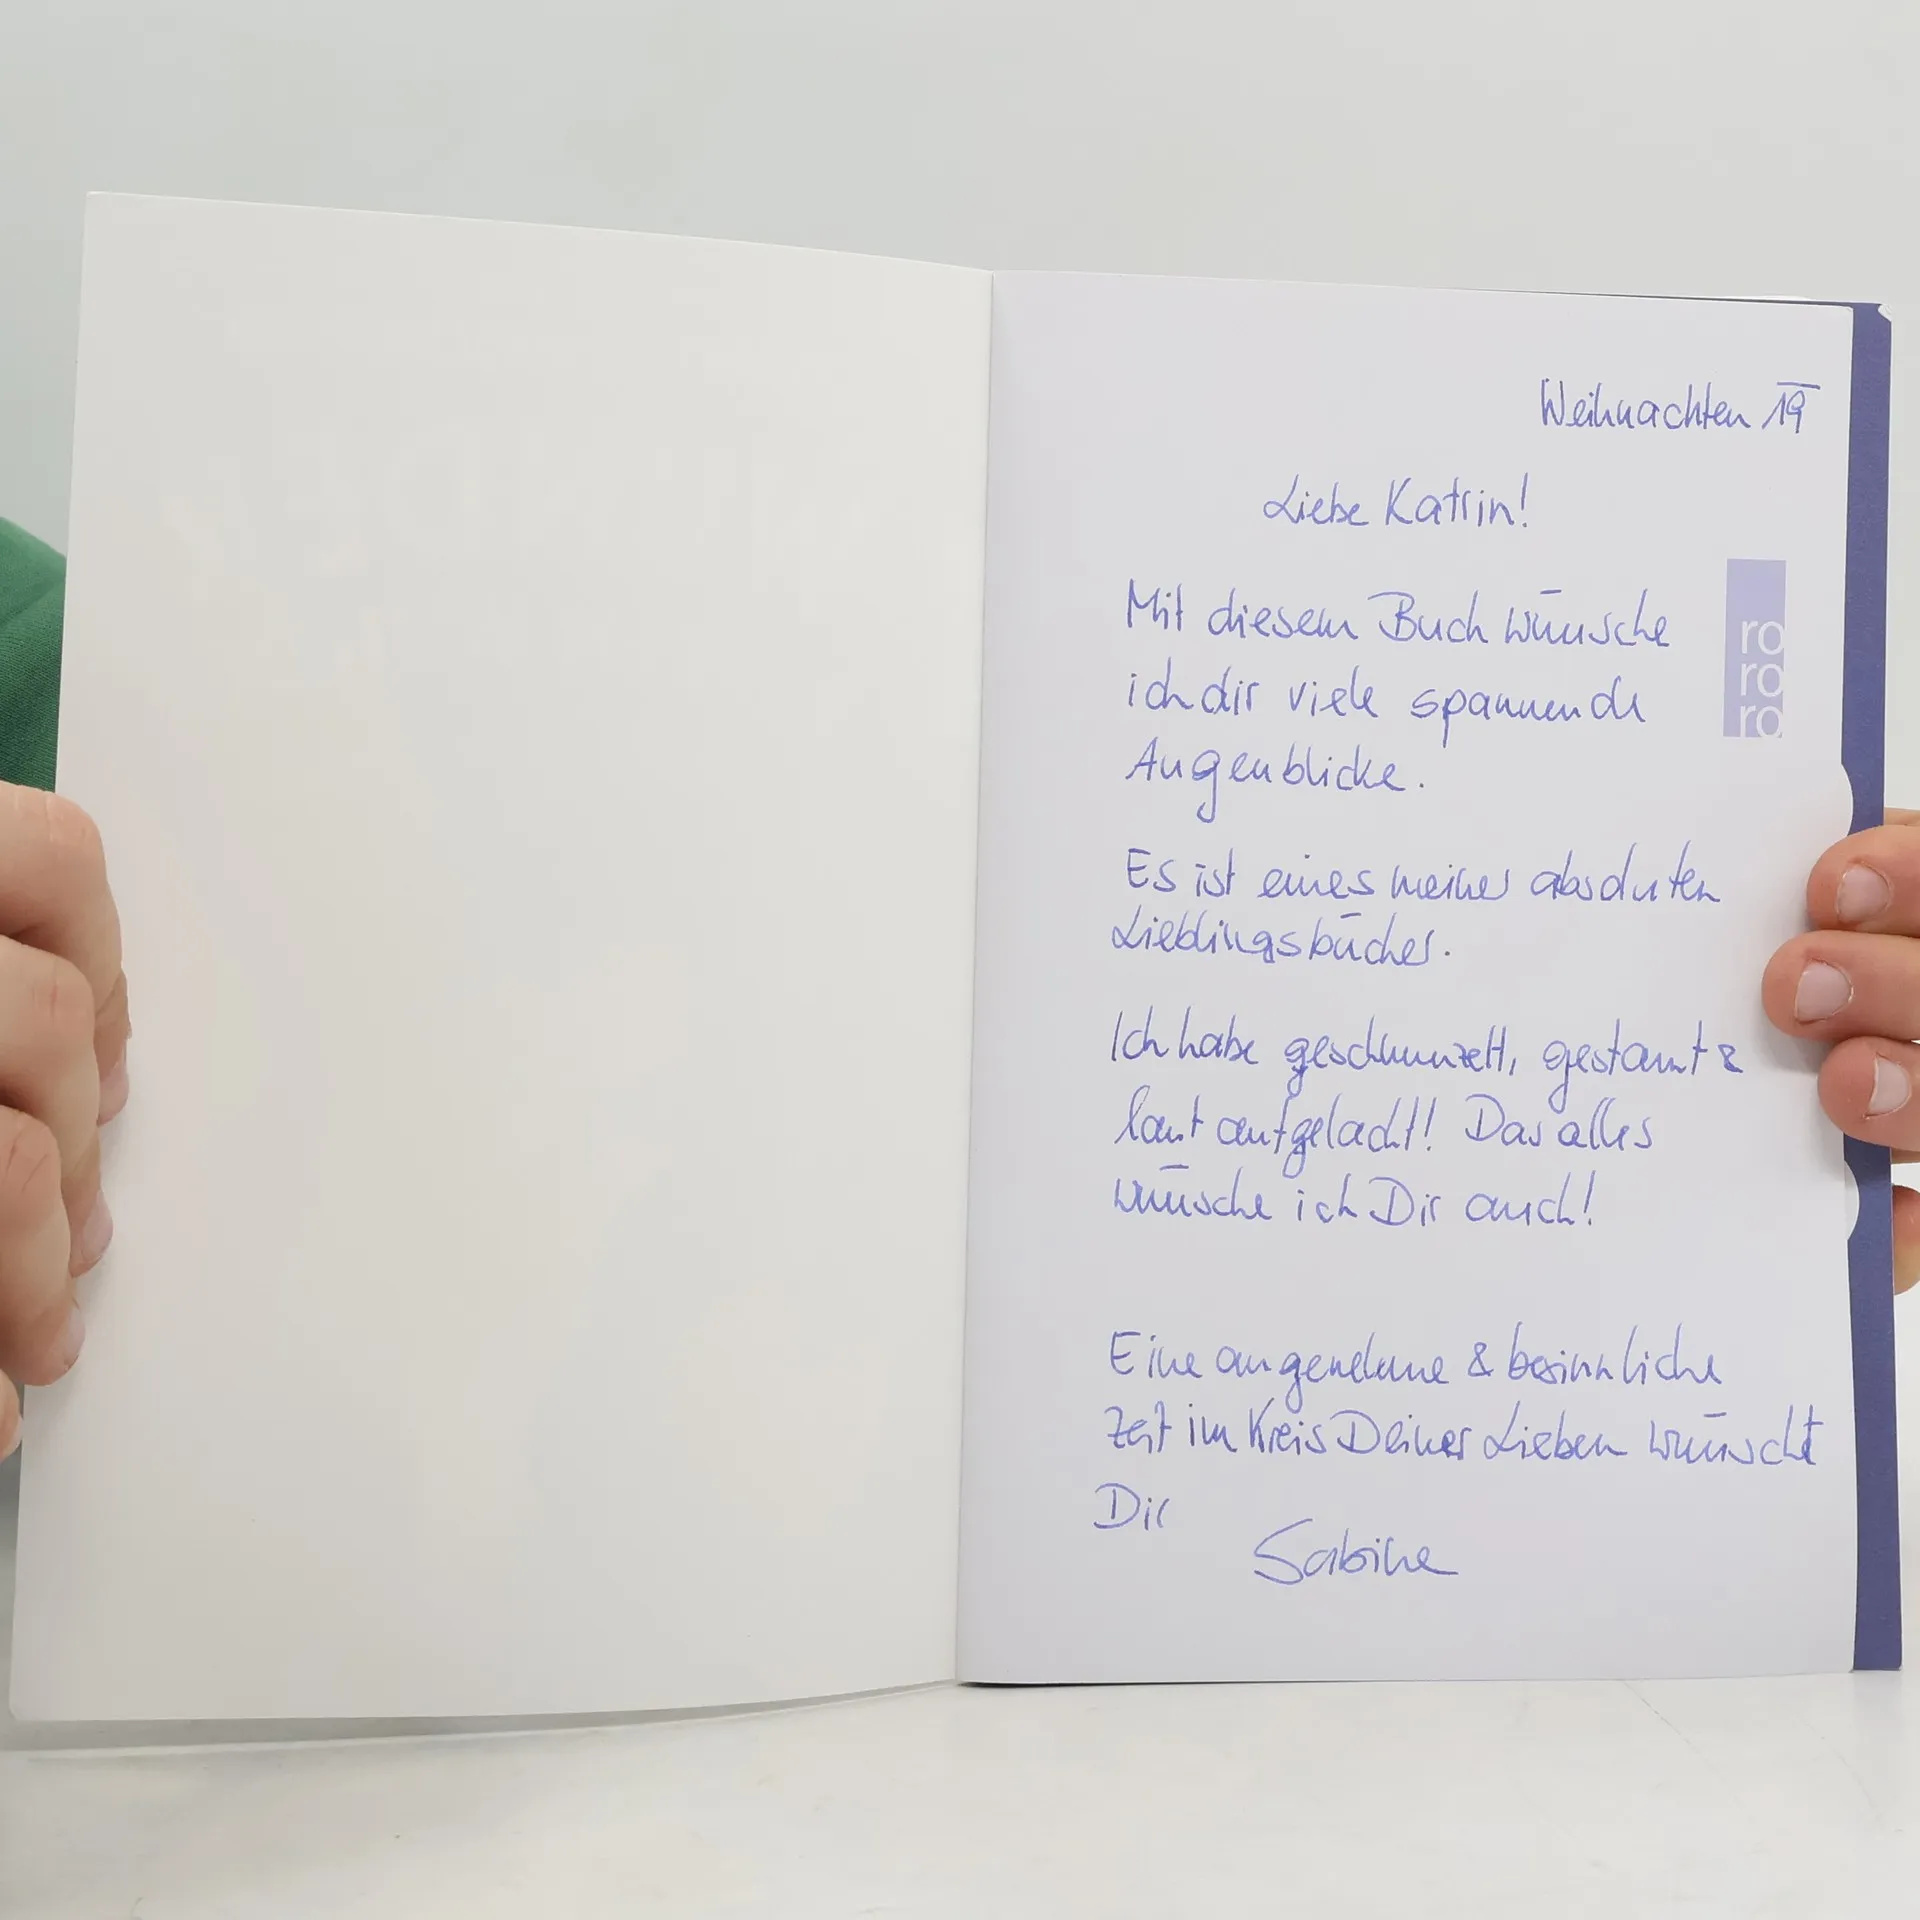 Weihnachten 19
Liebe Katrin!
Mit diesem Buch wünsche
ich dir viele spannende
Augenblicke.
Es ist eines meiner absoluten
Lieblingsbücher.
Ich habe geschmunzelt, gestaunt &
laut aufgelacht! Das alles
wünsche ich Dir auch!
Eine angenehme & besinnliche
Zeit im Kreis Deiner Lieben wünscht
Dir
Sabine
ro
ro
ro